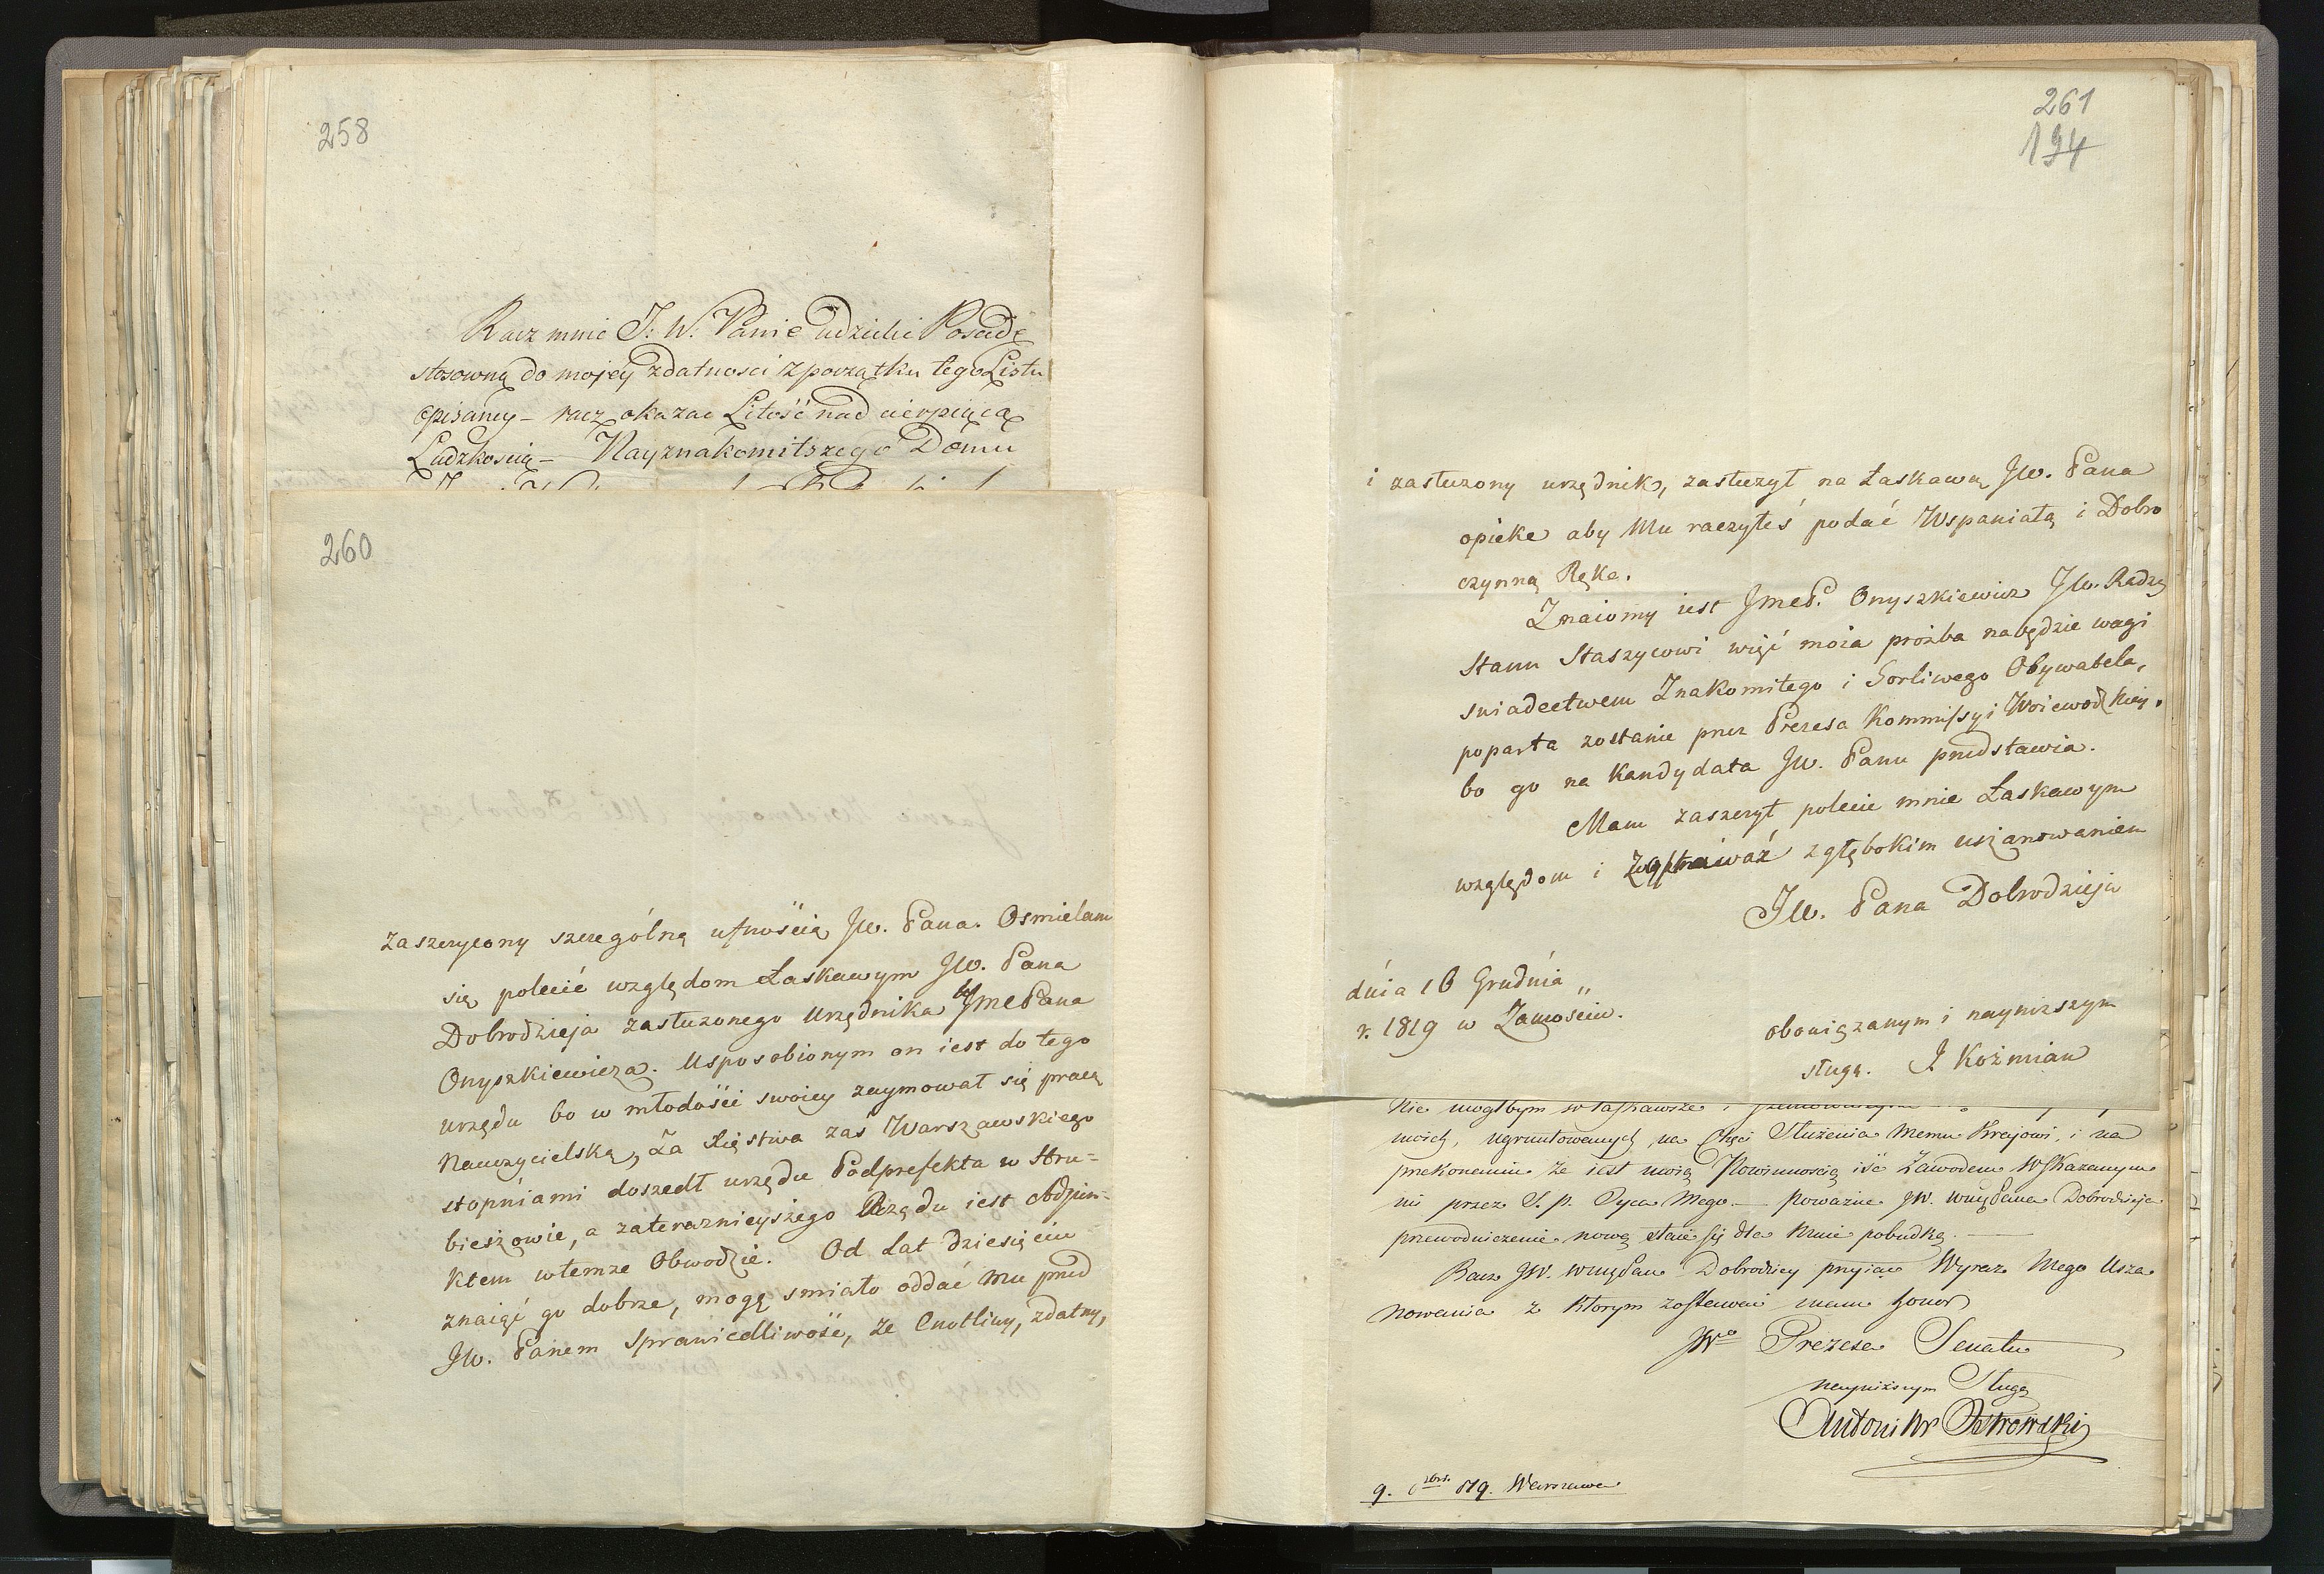 258
Racz mnie J: W. Panie udzielić Posadę
stosowną do mojéy zdatnosci z początku tego Listu
opisaney – racz okazac Litość nad cierpiącą
Ludzkoscią – Nayznakomitszego Domu
260
zaszczycony szczególną ufnością JW. Pana. Osmielam
się polecić względom Łaskawym JW. Pana
Dobrodzieja zasłużonego Urzędnika JmePana
Onyszkiewicza. Usposobionym on iest do tego
urzędu bo w młodości swoiey zaymował się pracą
Nauczycielską, Za Xięstwa zaś Warszawskiego
stopniami doszedł urzędu Podprefekta w Hru=
bieszowie, a zateraznieyszego Rządu iest Adjun=
ktem wtemze Obwodzie. Od Lat dziesięciu
znaiąć go dobrze, mogę smiało oddać Mu przed
JW. Panem Sprawiedliwość, że Cnotliwy, zdatny,
261
194
i zasłuzony urzędnik, zasłuzył na Łaskawą JW. Pana
opieke aby Mu raczyłeś podać Wspaniałą i Dobro
czynną Rękę.
Znaiomy iest JmeP. Onyszkiewicz JW. Radzcy
Stanu Staszycowi więć moia proźba nabędzie wagi
sniadectwem Znakomitego i Gorliwego Obywatela,
poparta zostanie przez Prezesa Kommissyi Woiewodzkiey,
bo go na Kandydata JW. Panu przedstawia.
Mam zaszczyt polecic mnie Łaskawym
względom i zgłębokim uszanowaniem
JW. Pana Dobrodzieja
dńia 16 Grudńia
r. 1819 w Zamościu.
obowiązanym i nayniższym
sługą. J Koźmian
Nie mogłbym w łaskawsze i
moich, ugruntowanych na Chęci Służenia Memu Krajowi, i na
przekonaniu że iest moią Powinnością iść Zawodem Wskazanym
mi przez S. p. Oyca Mego. — Poważne JW. Pana Dobrodzieja
przewodniczenie nową stanie się dla Mnie pobudką. —
Racz JW. Pan Dobrodziey przyiąć Wyraz Mego Usza
nowania z Ktorym zostawać mam honor
JWo Prezesa Senatu
nayniższym Sługą
Antoni Hr Ostrowski
9. 819. Warszawa